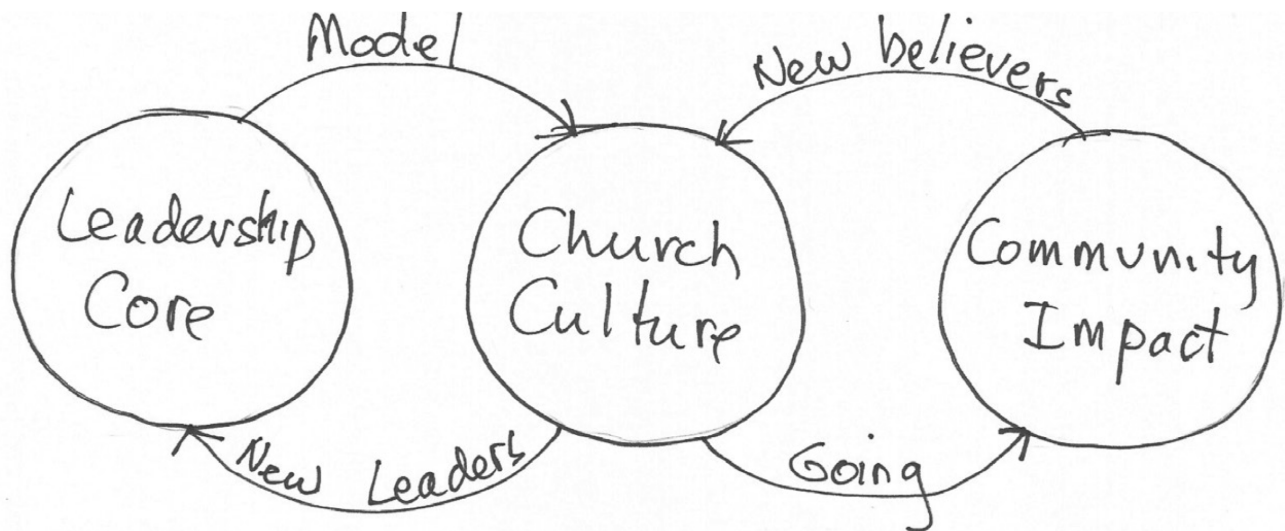 Model
New believers
Leadership
Core
Church
Culture
Community
Impact
New Leaders
Going